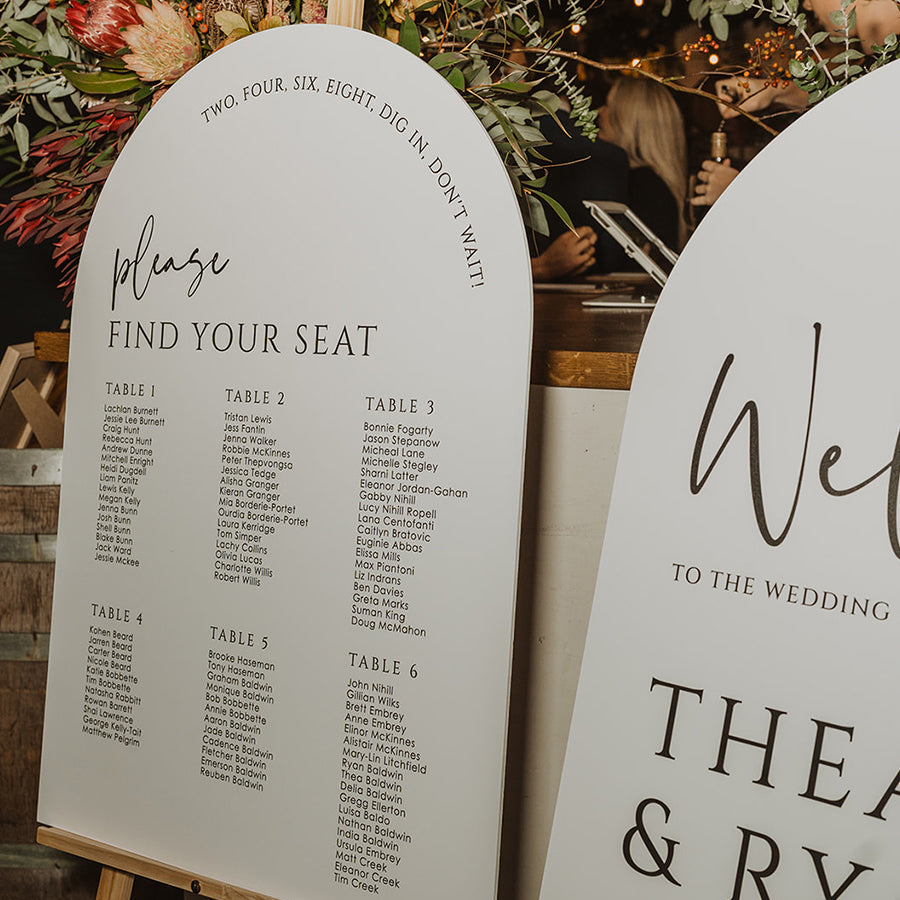 TWO, FOUR, SIX, EIGHT, DIG IN, DON'T WAIT!
please
FIND YOUR SEAT
TABLE 1
Lachlan Burnett
Jessie Lee Burnett
Craig Hunt
Rebecca Hunt
Andrew Dunne
Mitchell Enright
Heidi Dugdell
Liam Panitz
Lewis Kelly
Megan Kelly
Jenna Bunn
Josh Bunn
Shell Bunn
Blake Bunn
Jack Ward
Jessie Mckee
TABLE 2
Tristan Lewis
Jess Fantin
Jenna Walker
Robbie McKinnes
Peter Thepvongsa
Jessica Tedge
Alisha Granger
Kieran Granger
Mia Borderie-Portet
Ourdia Borderie-Portet
Laura Kerridge
Tom Simper
Lachy Collins
Olivia Lucas
Charlotte Willis
Robert Willis
TABLE 3
Bonnie Fogarty
Jason Stepanow
Micheal Lane
Michelle Stegley
Sharni Latter
Eleanor Jordan-Gahan
Gabby Nihill
Lucy Nihill Ropell
Lana Centofanti
Caitlyn Bratovic
Euginie Abbas
Elissa Mills
Max Piantoni
Liz Indrans
Ben Davies
Greta Marks
Suman King
Doug McMahon
TABLE 4
Kohen Beard
Jarren Beard
Carter Beard
Nicole Beard
Katie Bobbette
Tim Bobbette
Natasha Rabbitt
Rowan Barrett
Shai Lawrence
George Kelly-Tait
Matthew Pelgrim
TABLE 5
Brooke Haseman
Tony Haseman
Graham Baldwin
Monique Baldwin
Bob Bobbette
Annie Bobbette
Aaron Baldwin
Jade Baldwin
Cadence Baldwin
Fletcher Baldwin
Emerson Baldwin
Reuben Baldwin
TABLE 6
John Nihill
Gillian Wilks
Brett Embrey
Anne Embrey
Elinor McKinnes
Alistair McKinnes
Mary-Lin Litchfield
Ryan Baldwin
Thea Baldwin
Delia Baldwin
Gregg Ellerton
Luisa Baldo
Nathan Baldwin
India Baldwin
Ursula Embrey
Matt Creek
Eleanor Creek
Tim Creek
Wel
TO THE WEDDING
THEA
& RY